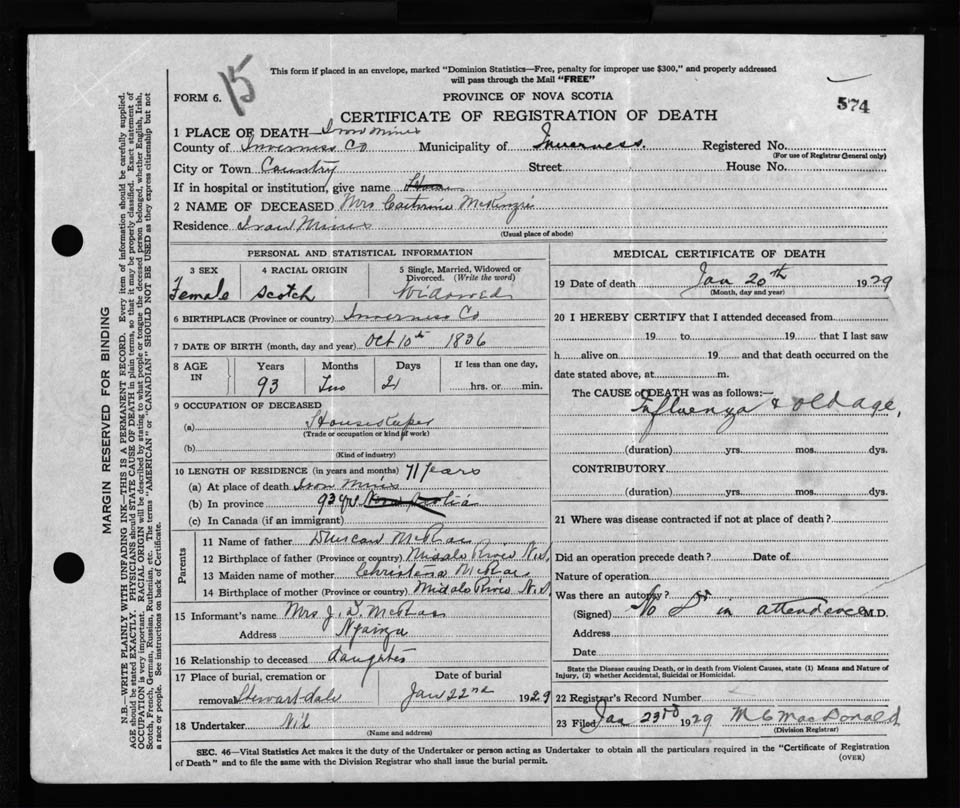 This form if placed in an envelope, marked "Dominion Statistics—Free, penalty for improper use $300," and properly addressed
will pass through the Mail "FREE"
15
FORM 6.
PROVINCE OF NOVA SCOTIA
574
CERTIFICATE OF REGISTRATION OF DEATH
1 PLACE OF DEATH Iron Mines
County of Inverness Co Municipality of Inverness. Registered No.
(For use of Registrar General only)
City or Town Country Street House No.
If in hospital or institution, give name
2 NAME OF DECEASED Mrs Catherine McKenzie
Residence Iron Mines
(Usual place of abode)
PERSONAL AND STATISTICAL INFORMATION
3 SEX 4 RACIAL ORIGIN 5 Single, Married, Widowed or
Divorced. (Write the word)
Female Scotch Widowed
6 BIRTHPLACE (Province or country) Inverness Co
7 DATE OF BIRTH (month, day and year) Oct 10th 1836
8 AGE IN Years Months Days If less than one day,
93 Two 21 hrs. or min.
9 OCCUPATION OF DECEASED
(a) Housekeeper
(Trade or occupation or kind of work)
(b)
(Kind of industry)
10 LENGTH OF RESIDENCE (in years and months) 71 years
(a) At place of death Iron Mines
(b) In province 93 yrs Nova Scotia
(c) In Canada (if an immigrant)
Parents
11 Name of father Duncan McRae
12 Birthplace of father (Province or country) Middle River N.S,
13 Maiden name of mother Christena McRae
14 Birthplace of mother (Province or country) Middle River N.S.
15 Informant's name Mrs J. D. McRae
Address Nyanza
16 Relationship to deceased daughter
17 Place of burial, cremation or Date of burial
removal Stewartdale Jan 22nd 1929
18 Undertaker Nil
(Name and address)
MEDICAL CERTIFICATE OF DEATH
19 Date of death Jan 20th 1929
(Month, day and year)
20 I HEREBY CERTIFY that I attended deceased from
19 to 19 that I last saw
h alive on 19 and that death occurred on the
date stated above, at m.
The CAUSE of DEATH was as follows:—
Influenza & old age,
(duration) yrs. mos. dys.
CONTRIBUTORY
(duration) yrs. mos. dys.
21 Where was disease contracted if not at place of death?
Did an operation precede death? Date of
Nature of operation
Was there an autopsy?
(Signed) No Dr in attendance M.D.
Address
Date
State the Disease causing Death, or in death from Violent Causes, state (1) Means and Nature of
Injury, (2) whether Accidental, Suicidal or Homicidal.
22 Registrar's Record Number
23 Filed Jan 23rd 1929 M C MacDonald
(Division Registrar)
SEC. 46—Vital Statistics Act makes it the duty of the Undertaker or person acting as Undertaker to obtain all the particulars required in the "Certificate of Registration
of Death" and to file the same with the Division Registrar who shall issue the burial permit.
(OVER)
MARGIN RESERVED FOR BINDING
N.B.—WRITE PLAINLY WITH UNFADING INK—THIS IS A PERMANENT RECORD. Every item of information should be carefully supplied.
AGE should be stated EXACTLY. PHYSICIANS should STATE CAUSE OF DEATH in plain terms, so that it may be properly classified. Exact statement of
OCCUPATION is very important. RACIAL ORIGIN will be described by stating to what people or tongue the deceased person belonged, whether English, Irish,
Scotch, French, German, Russian, Ruthenian, etc. The terms "AMERICAN" or "CANADIAN" SHOULD NOT BE USED as they express citizenship but not
a race or people. See instructions on back of Certificate.